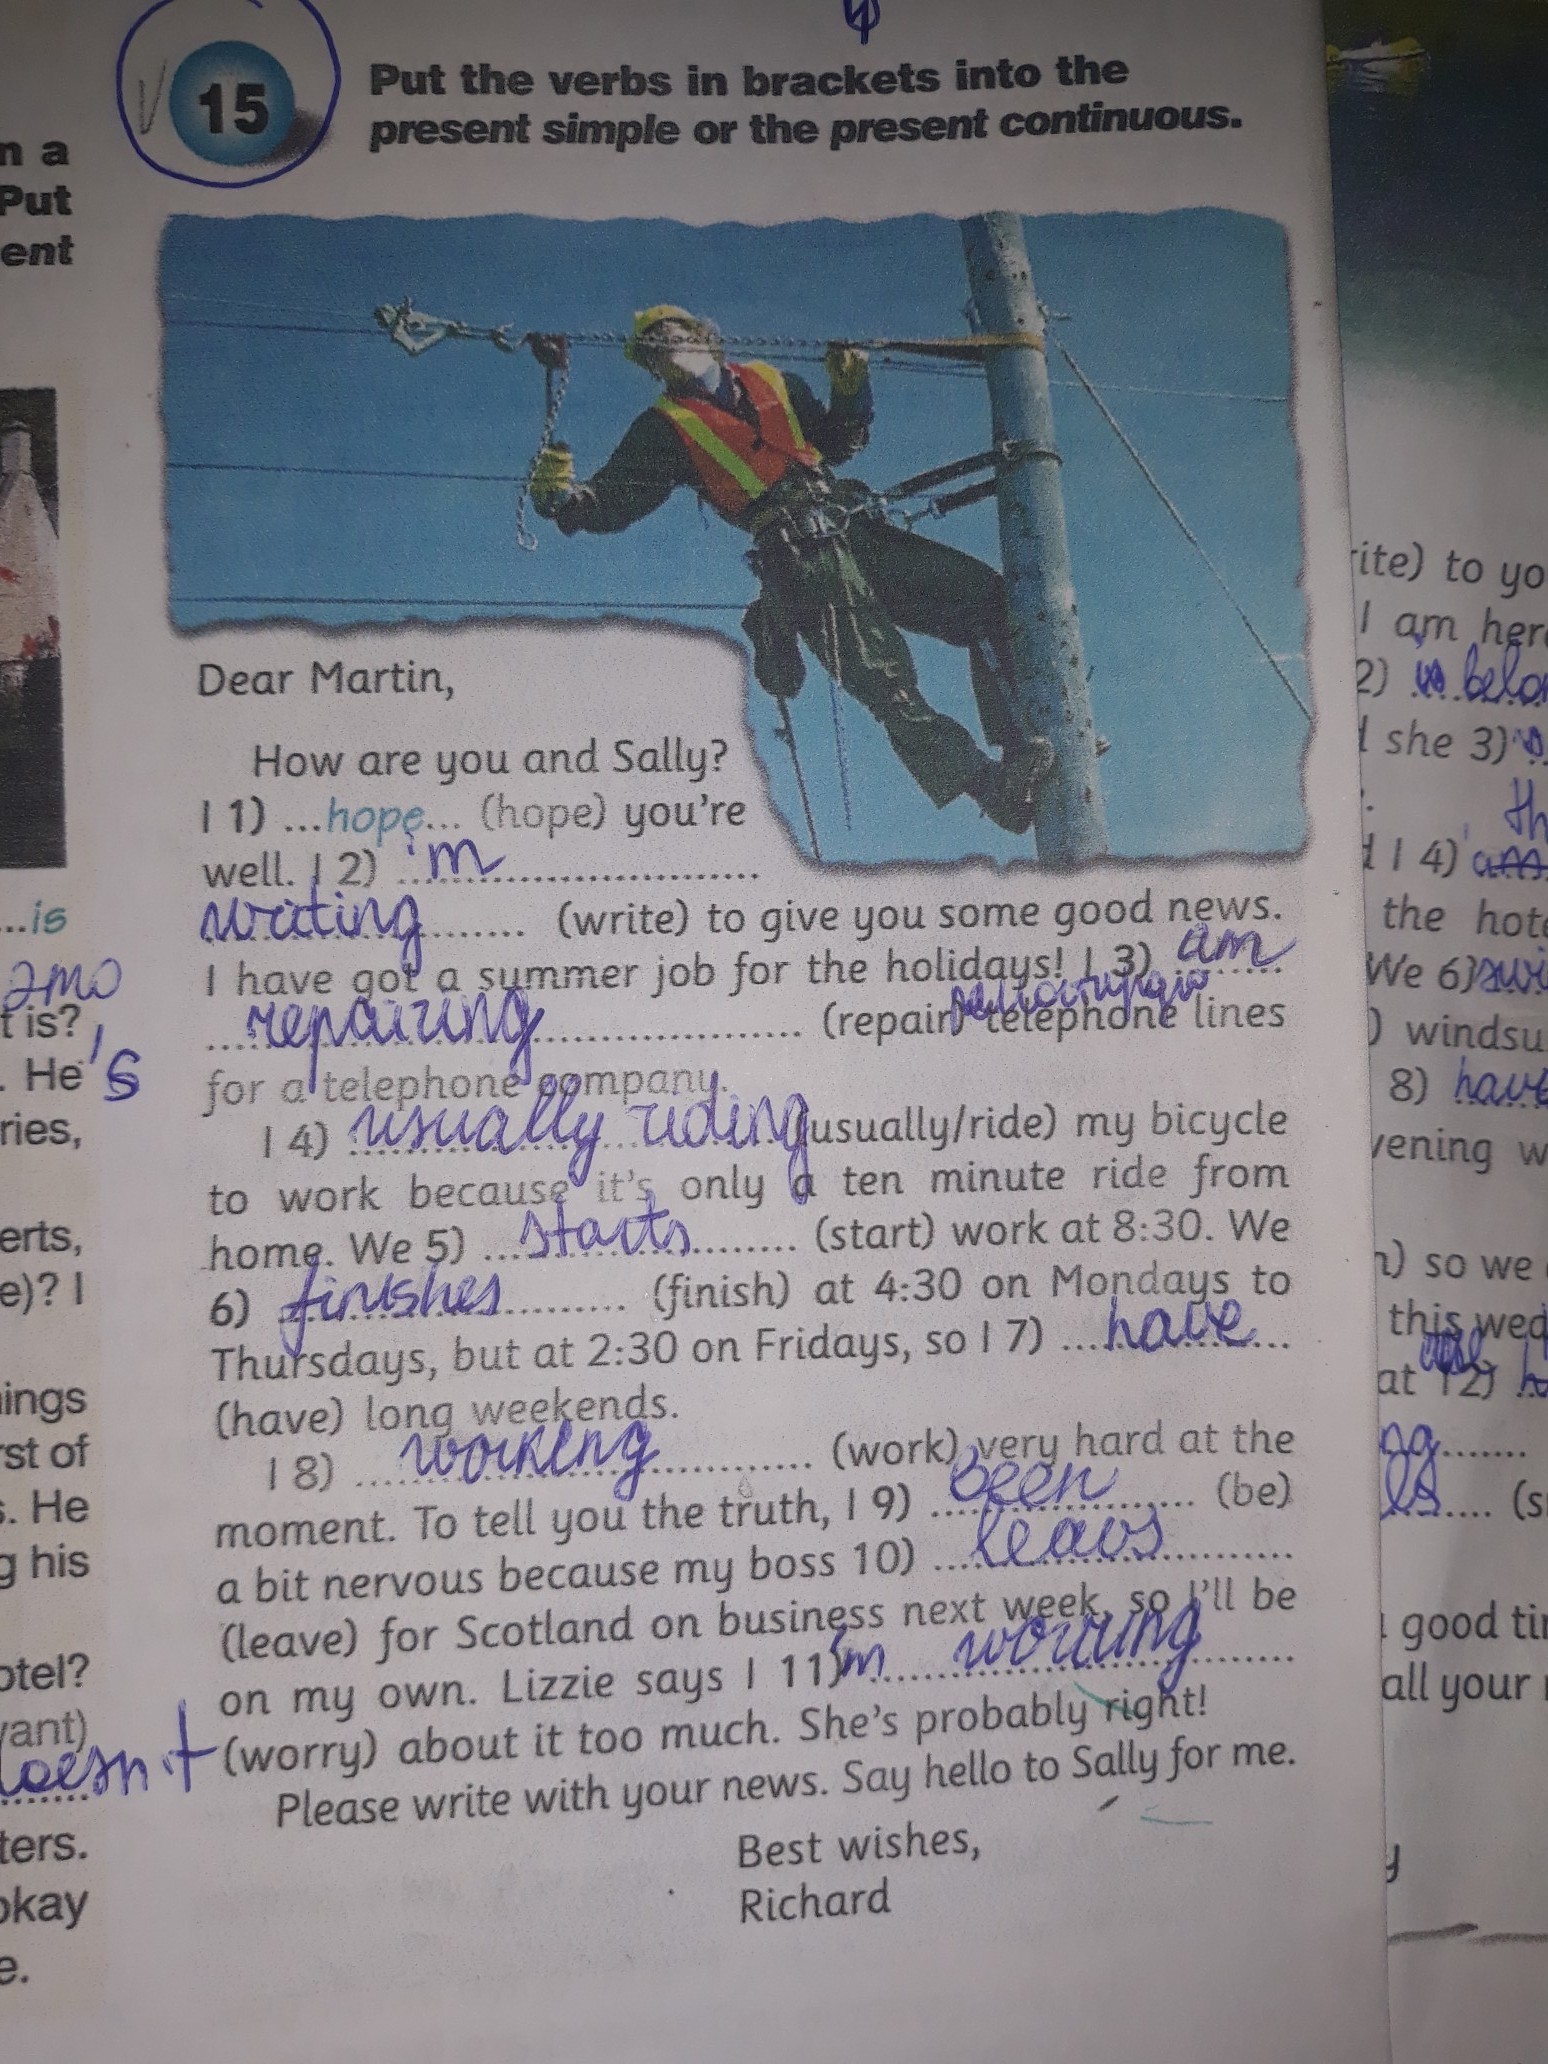 15
Put the verbs in brackets into the
present simple or the present continuous.
n a
Put
ent
Dear Martin,
How are you and Sally?
I 1) ...hope... (hope) you're
well. I 2) 'm
writing (write) to give you some good news.
I have got a summer job for the holidays! I 3) am
repairing (repair) telephone lines
for a telephone company.
I 4) usually riding (usually/ride) my bicycle
to work because it's only a ten minute ride from
home. We 5) starts (start) work at 8:30. We
6) finishes (finish) at 4:30 on Mondays to
Thursdays, but at 2:30 on Fridays, so I 7) have
(have) long weekends.
I 8) working (work) very hard at the
moment. To tell you the truth, I 9) been (be)
a bit nervous because my boss 10) leavs
(leave) for Scotland on business next week, so I'll be
on my own. Lizzie says I 11) 'm worring
(worry) about it too much. She's probably right!
Please write with your news. Say hello to Sally for me.
Best wishes,
Richard
...is
t is?
. He's
ries,
erts,
e)? I
ings
rst of
s. He
g his
otel?
vant)
doesn't
ters.
okay
e.
rite) to yo
I am here
2) is belon
she 3)
I 4) am
the hote
We 6) swi
) windsu
8) have
vening w
n) so we
this wed
at 12)
ng
(s
good tim
all your
y